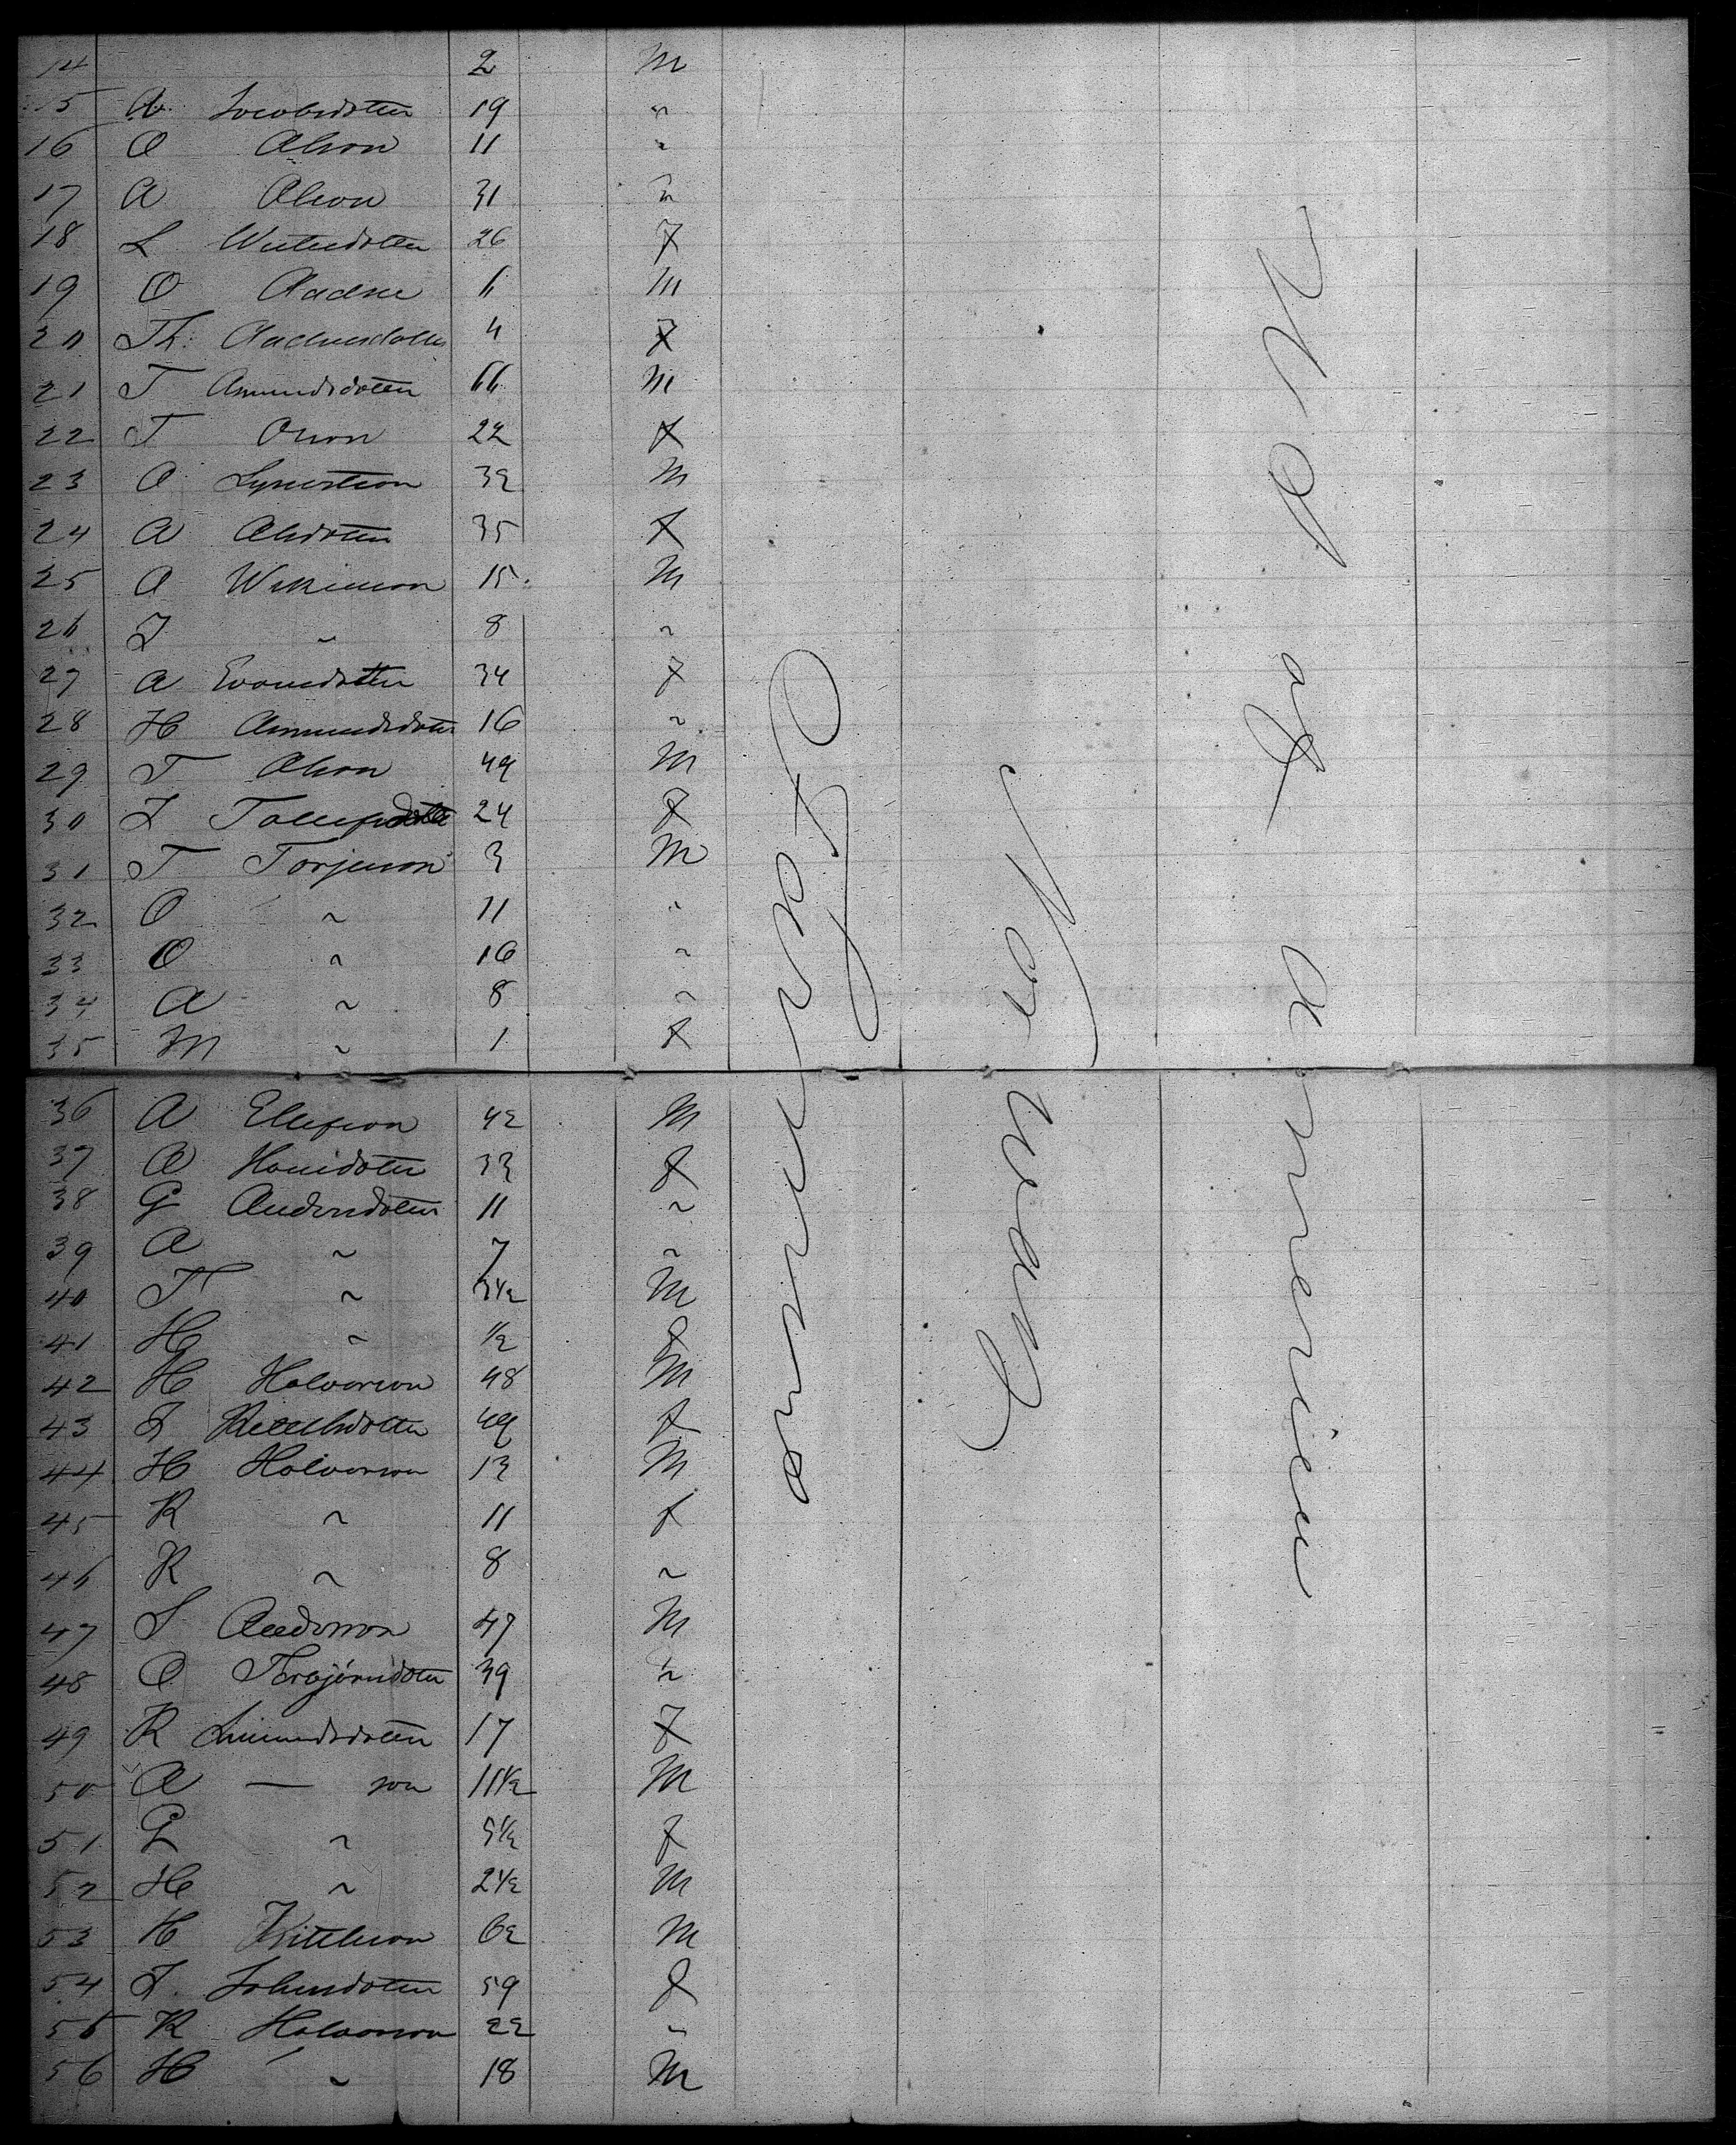 14 2 M
15 A Jacobsdotter 19 "
16 O Olson 11 "
17 A Olson 31 "
18 L 26 f
19 O Aadne 6 M
20 Th: Aadnesdotter 4 f
21 T Amundsdotter 66 M
22 T Oson 22 f
23 O 32 M
24 A Olsdotter 35 f
25 A 15 M
26 I " 8 "
27 A Evansdotter 34 f
28 H Amundsdotter 16 "
29 T Olson 49 M
30 I Tollefsdotter 24 f
31 T Torjuson 3 M
32 O " 11 "
33 O " 16 "
34 A " 8 "
35 M " 1 f
36 A Ellefson 42 M
37 A Hansdotter 33 f
38 G Andersdotter 11 "
39 A " 7 "
40 T " 3 1/2 M
41 H " 1/2 f
42 H Halvorson 48 M
43 I Ketelsdotter 49 f
44 H Halvorson 13 M
45 K " 11 f
46 K " 8 "
47 S Anderson 47 M
48 O Torbjørnsdotter 39 "
49 R Amundsdotter 17 f
50 A — son 11 1/2 M
51 G " 5 1/2 f
52 H " 2 1/2 M
53 H Kittleson 62 M
54 I. Johnsdotter 59 f
55 K Halvorson 22 "
56 H " 18 M
Norway
U S of America